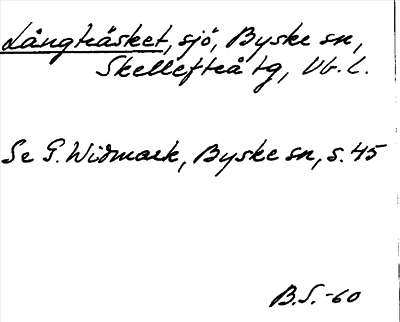 Långträsket, sjö, Byske sn,
Skellefteå tg, Vb. L.
Se G. Widmark, Byske sn, s. 45
B.S. -60